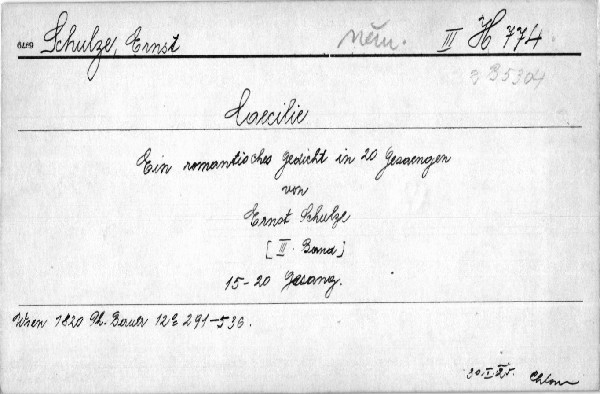 Schulze, Ernst něm. III H 774.
Caecilie
Ein romantisches Gedicht in 20 Gesaengen
von
Ernst Schulze
[III. Band]
15-20 Gesang.
Wien 1820 Ph. Bauer 12° 291-536.